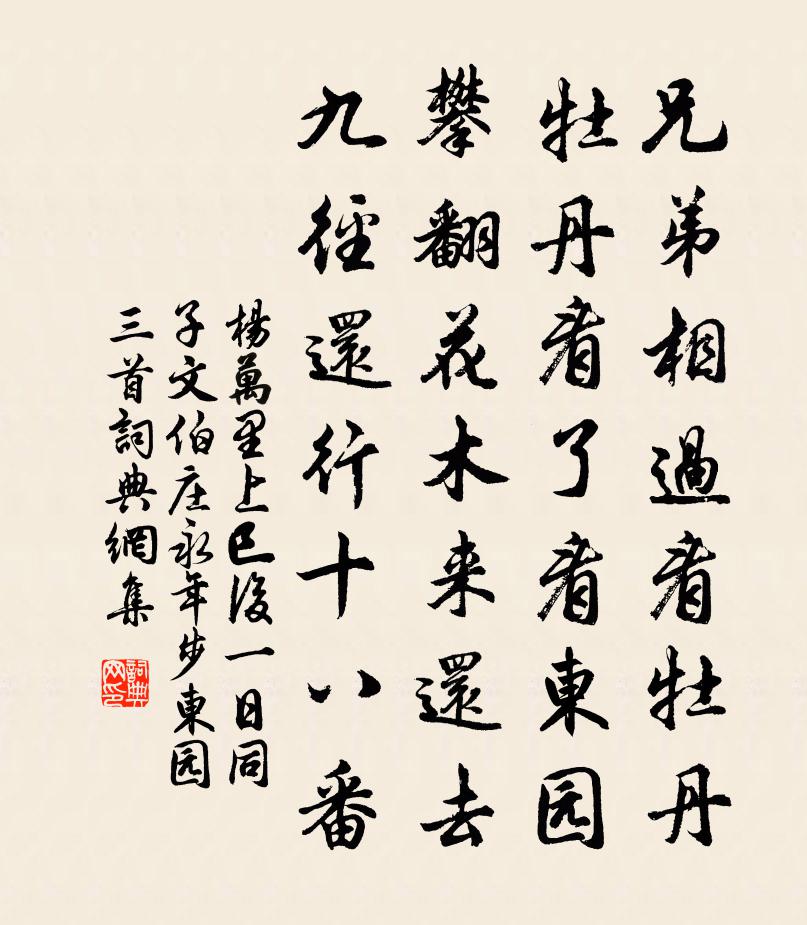 兄弟相過看牡丹
牡丹看了看東园
攀翻花木来還去
九徑還行十八番
楊萬里上巳後一日同
子文伯庄永年步東园
三首詞典網集
詞典
网印